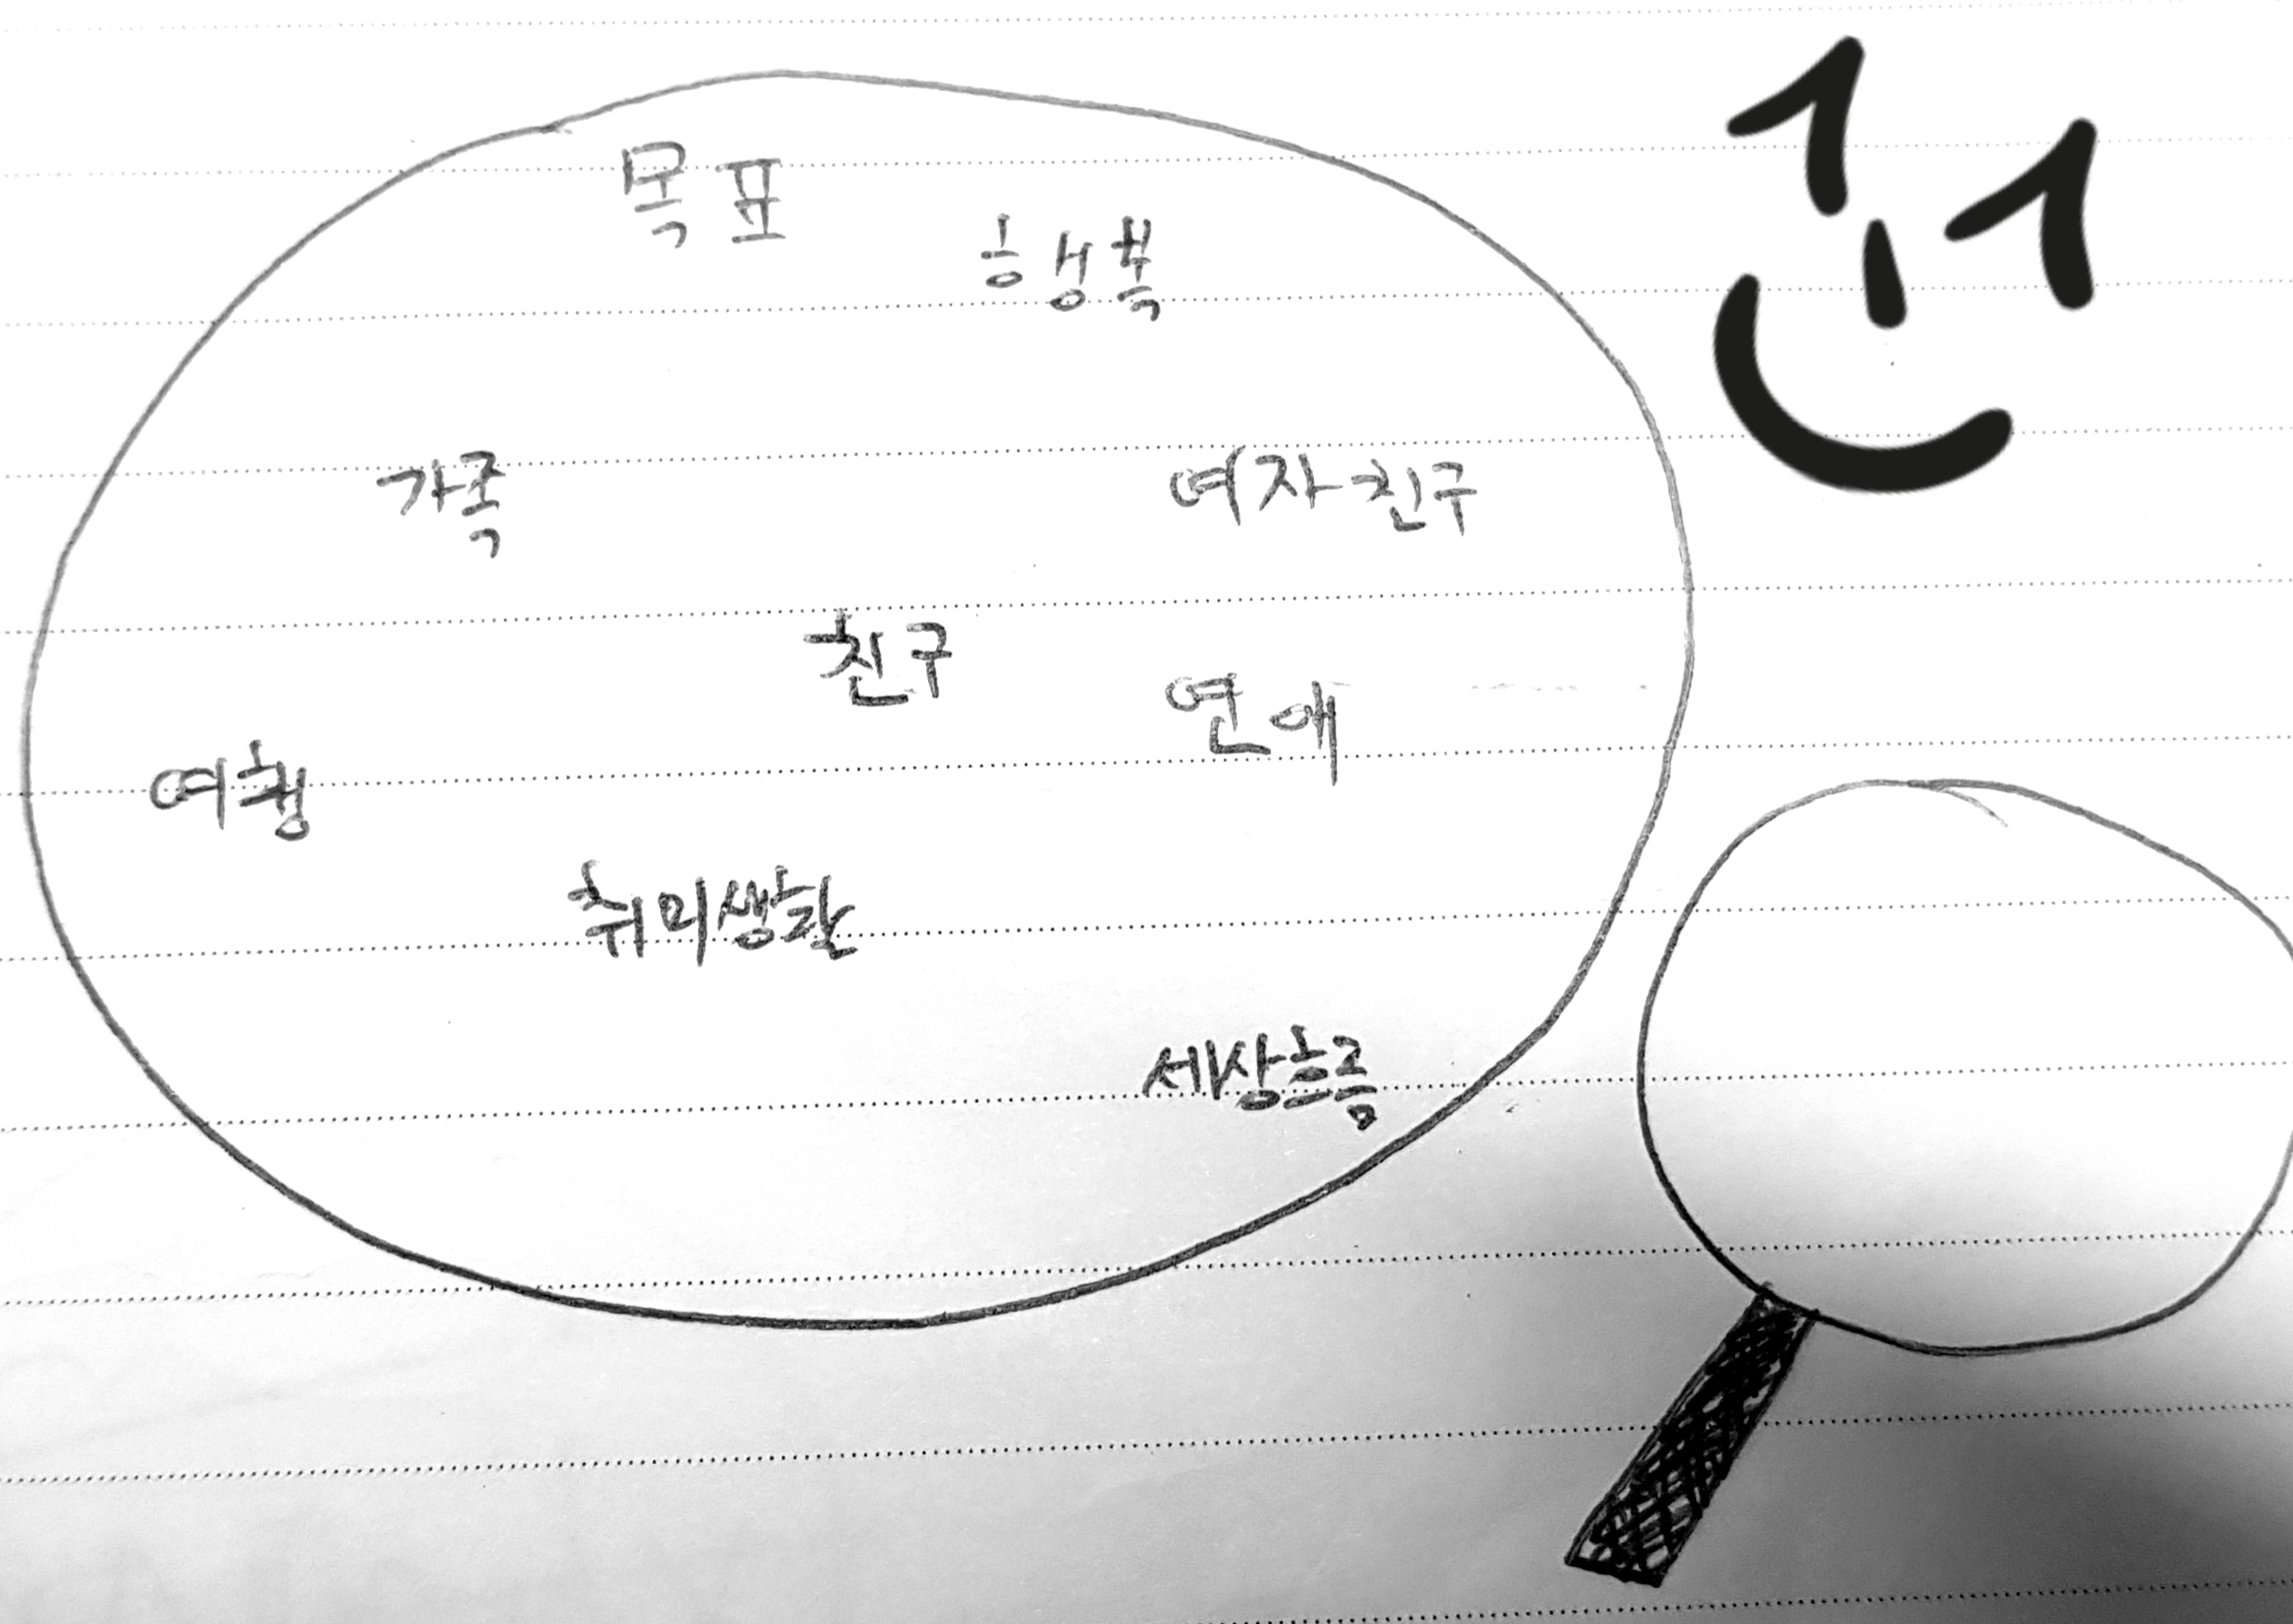 목표
행복
가족
여자친구
친구
연애
여행
취미생활
세상흐름